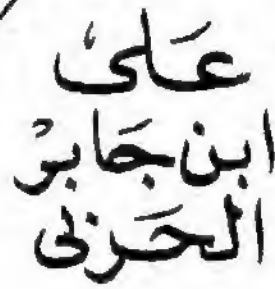 عَلى
ابن جَابرْ
الحَربى